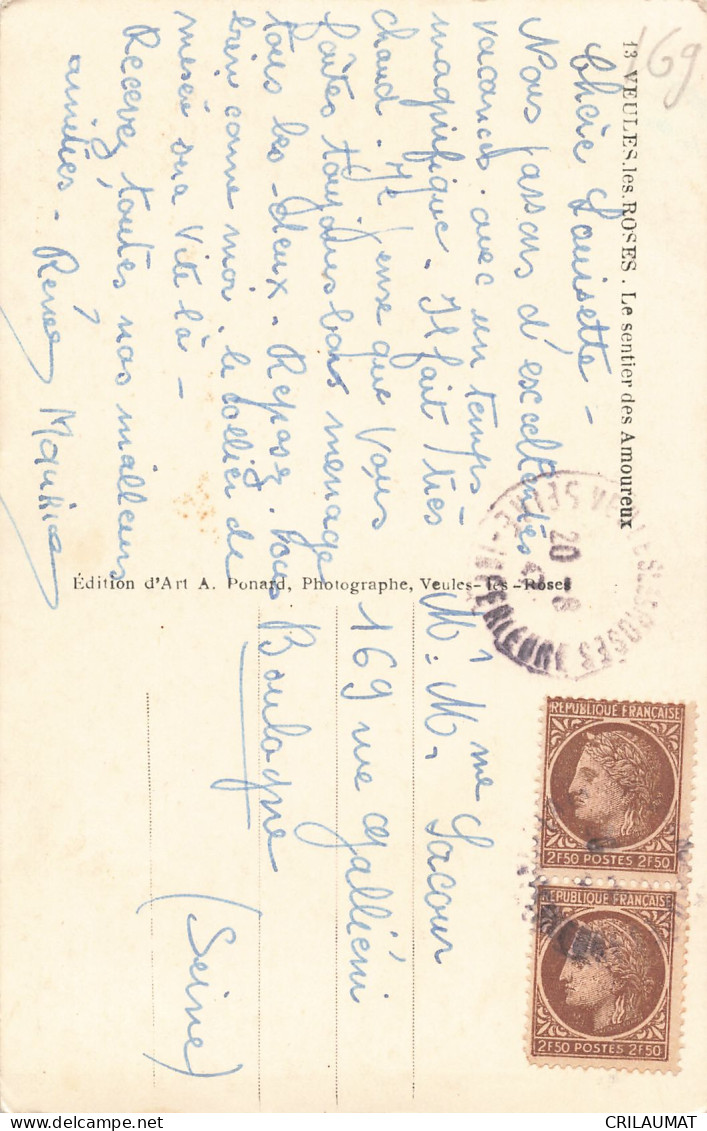 169
13 VEULES.les.ROSES . Le sentier des Amoureux
Chère Louisette -
Nous passons d'excellentes
vacances avec un temps
magnifique. Il fait très
chaud. Je pense que vous
faites toujours bons menage
tous les deux. Reposez vous
bien comme moi, le collier de
misère sera vite là -
Recevez toutes nos meilleurs
amitiés -
Édition d'Art A. Ponard, Photographe, Veules-les-Roses
M. Mme Lacour
169 rue Galliéni
Boulogne
(Seine)
SEINE-INFERIEURE
20 8
REPUBLIQUE FRANÇAISE
2F50 POSTES 2F50
REPUBLIQUE FRANÇAISE
2F50 POSTES 2F50
CRILAUMAT